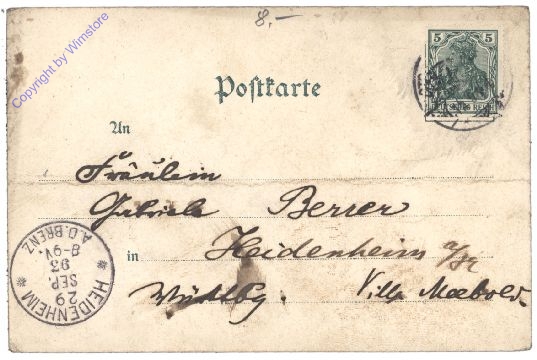 8.—
Copyright by Wimstore
5 5
DEUTSCHES REICH
Postkarte
An
Fräulein
Gabriele Berrer
in Heidenheim a/Br
Württbg. Villa Maebold.
HEIDENHEIM
29
SEP.
93
8-9V.
A.D.BRENZ